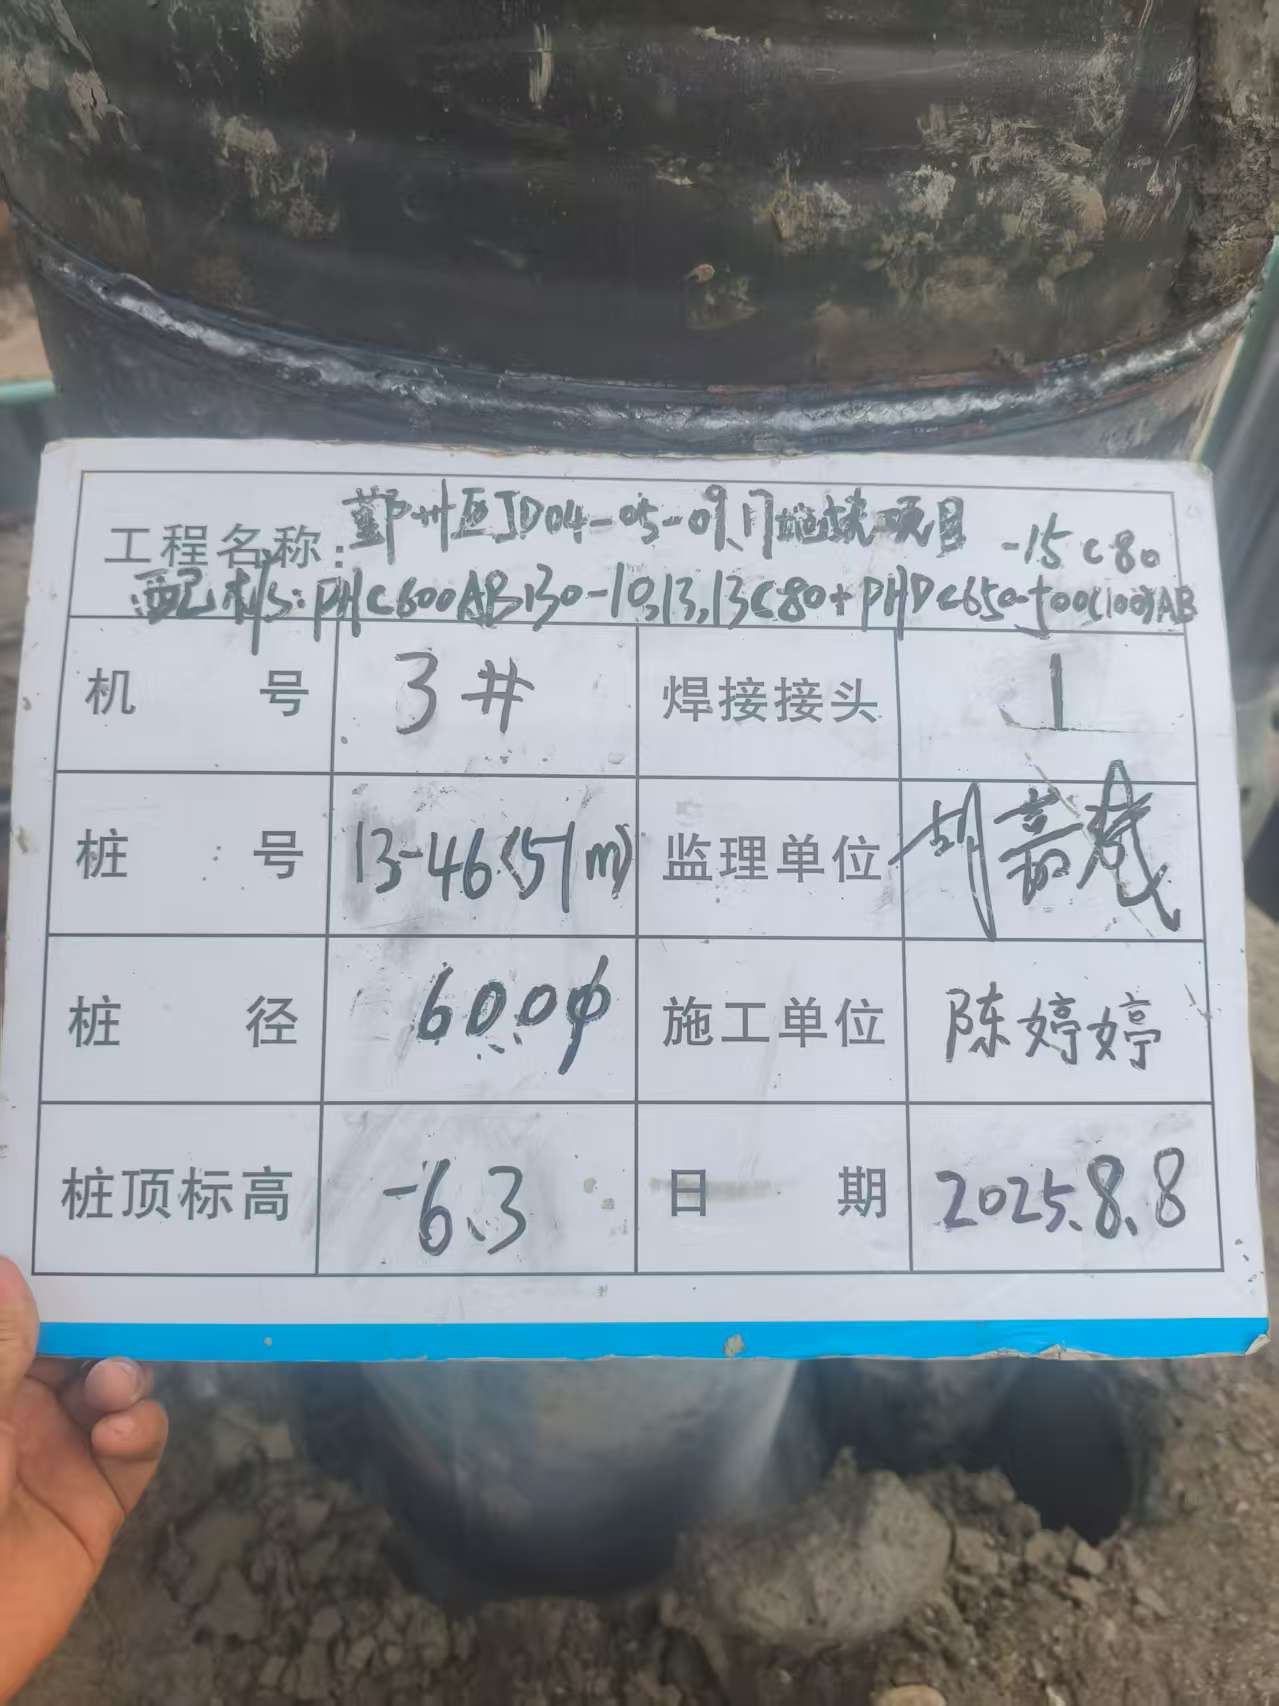 工程名称: 鄞州区JD04-05-09,17地块项目
配桩: PHC600AB130-10,13,13C80+PHDC650-500(100)AB
-15C80
机 号 3# 焊接接头 1
桩 号 13-46(51m) 监理单位
桩 径 600φ 施工单位 陈婷婷
桩顶标高 -6.3 日 期 2025.8.8